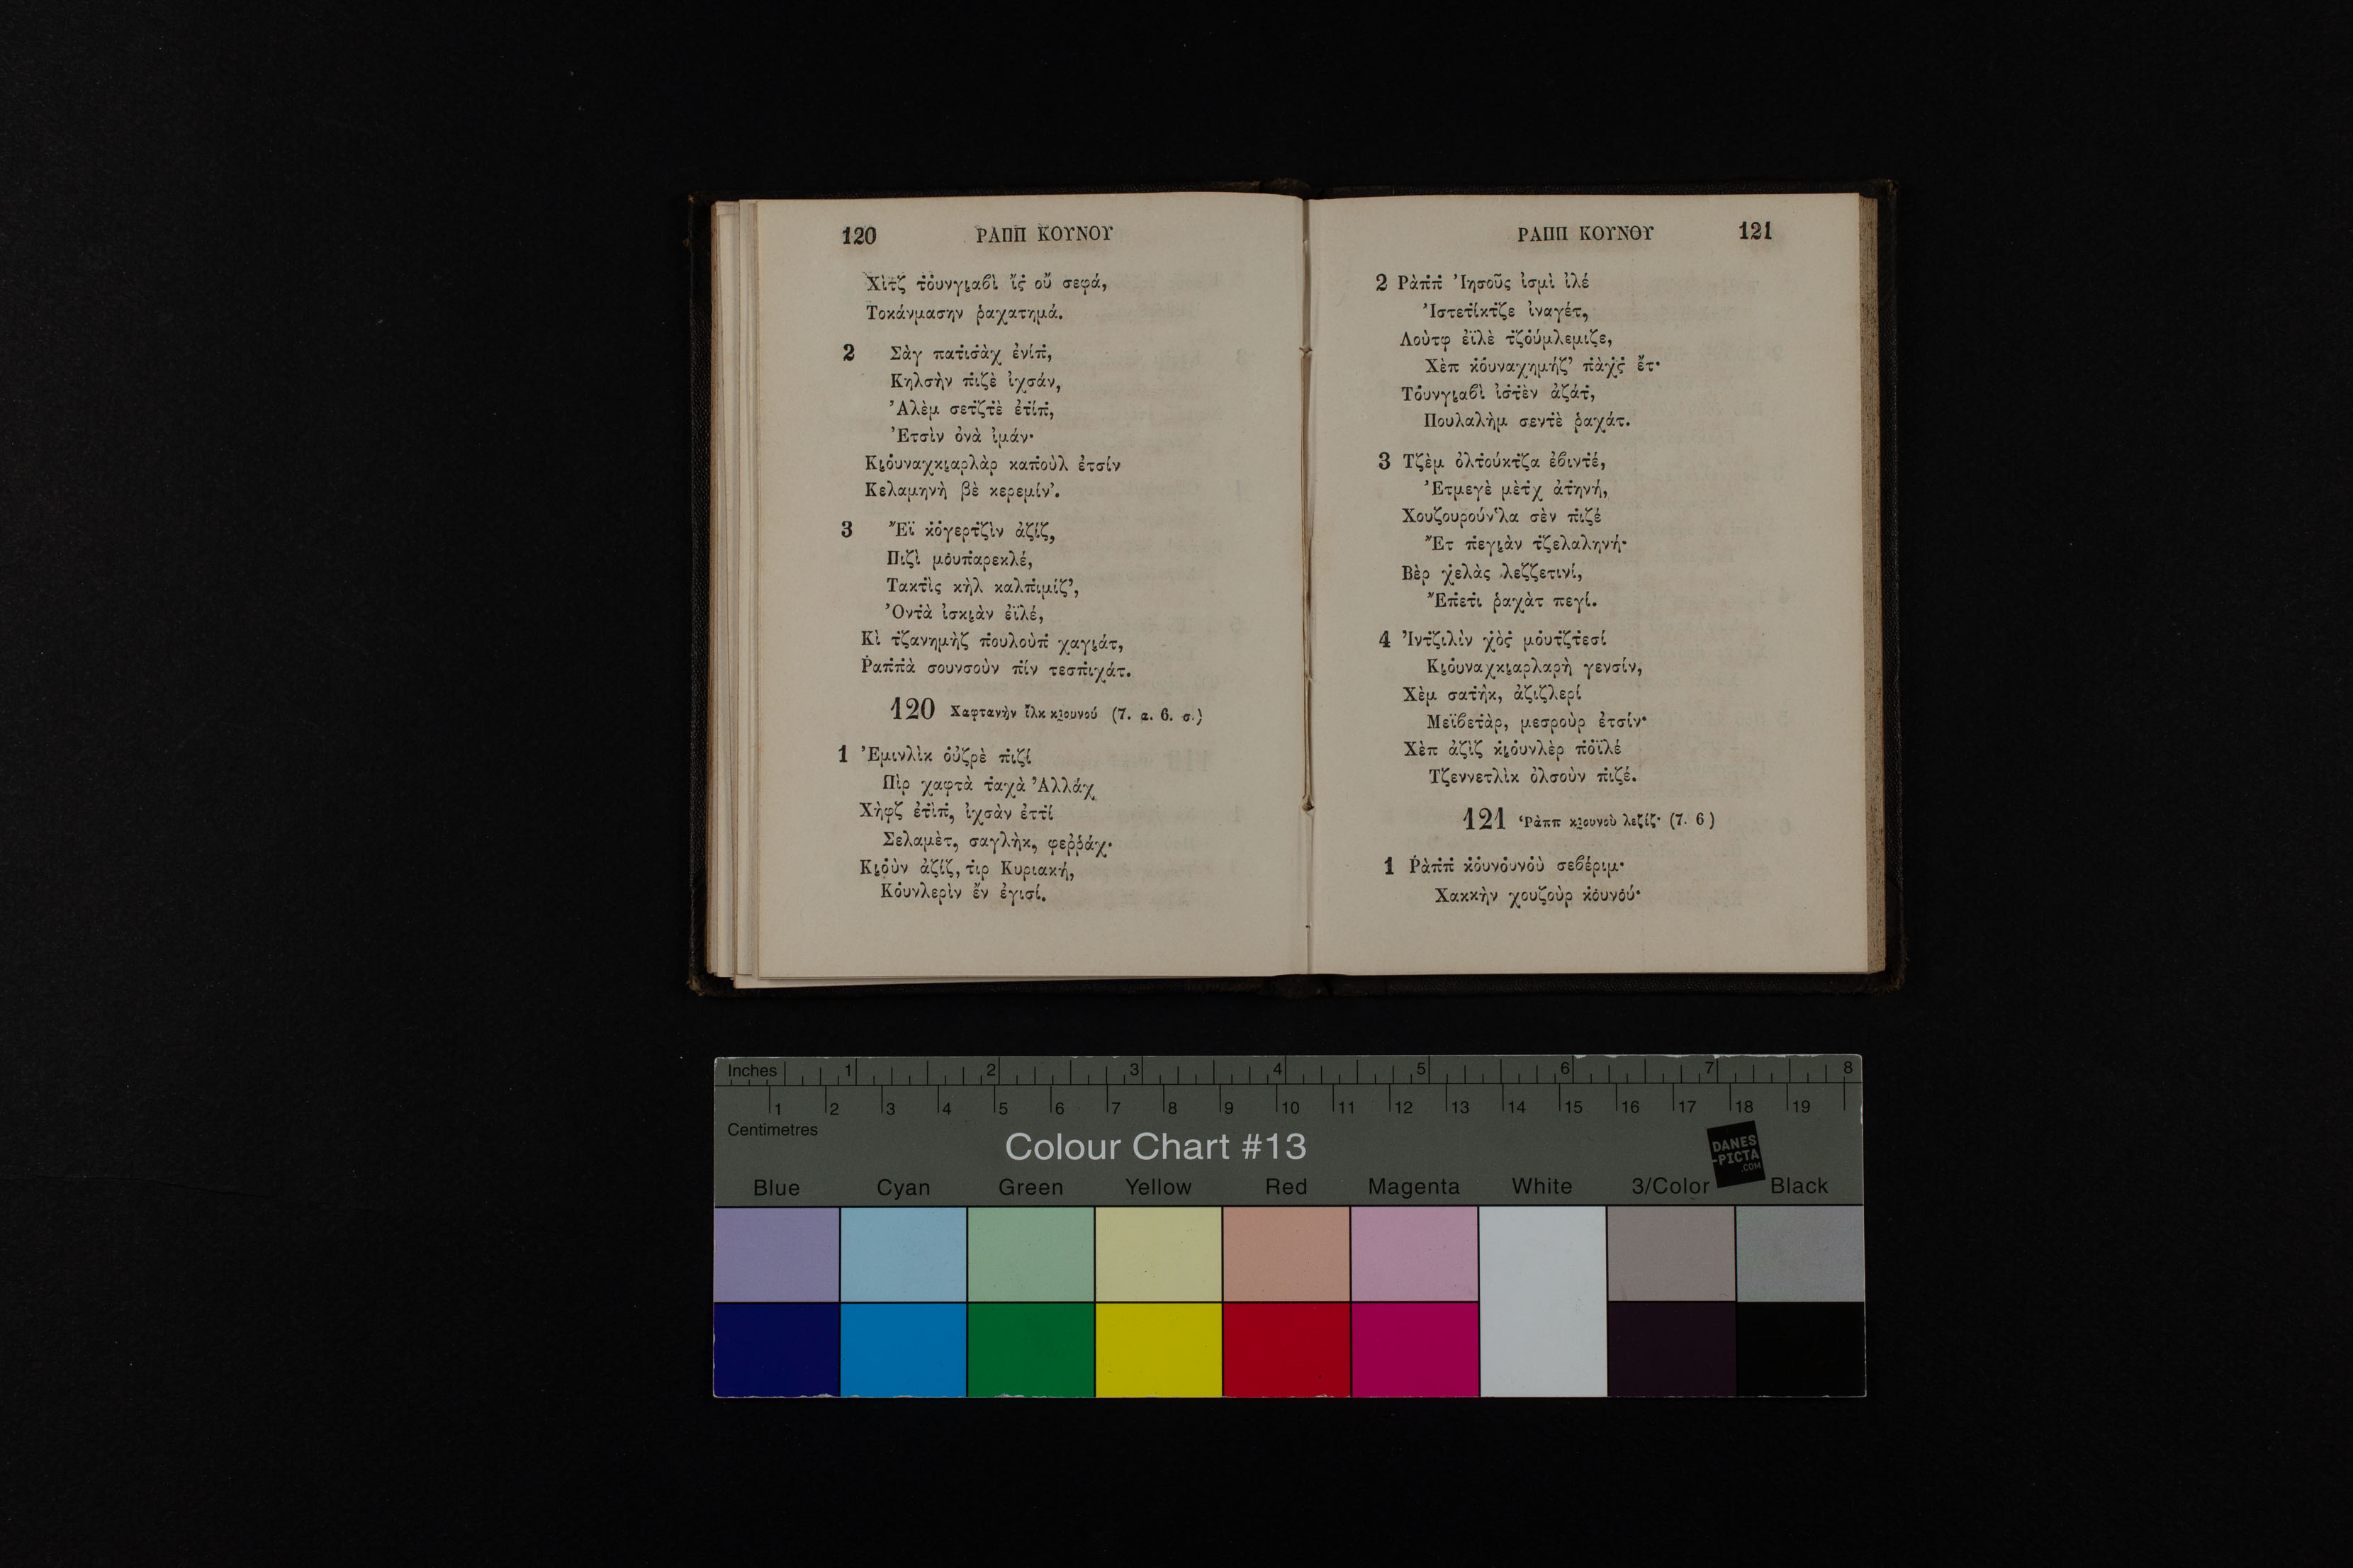 120 ΡΑΠΠ ΚΟΥΝΟΥ
Χὶτ̇ζ τ̇ο̇υνγι̱αβὶ ἴς̇ οὔ σεφά,
Τοκάνμασην ῥαχατημά.
2 Σὰγ πατ̇ισ̇ὰχ ἐνίπ̇,
Κηλσὴν π̇ιζὲ ἰχσάν,
Ἀλὲμ σετ̇ζτ̇ὲ ἐτ̇ίπ̇,
Ἐτσὶν ὀνὰ ἰμάν·
Κι̱ο̇υναχκι̱αρλὰρ καπ̇οὺλ ἐτσίν
Κελαμηνὴ βὲ κερεμίν'.
3 Ἔϊ κ̇ο̇γερτ̇ζὶν ἀζίζ,
Πιζὶ μο̇υπ̇αρεκλέ,
Τακτ̇ὶς κὴλ καλπ̇ιμίζ',
Ὀντ̇ὰ ἰσκι̱ὰν ἐϊλέ,
Κὶ τ̇ζανημὴζ π̇ουλοὺπ̇ χαγι̱άτ,
Ῥαπ̇π̇ὰ σουνσοὺν π̇ίν τεσπ̇ιχάτ.
120 Χαφτανὴν ἴλκ κι̱ουνού (7. α. 6. σ.)
1 Ἐμινλὶκ ο̇ὐζρὲ π̇ιζί
Πὶρ χαφτὰ τ̇αχὰ Ἀλλάχ
Χὴφζ ἐτ̇ὶπ̇, ἰχσὰν ἐττί
Σελαμὲτ, σαγλὴκ, φεῤῥάχ·
Κι̱ο̇ὺν ἀζίζ, τ̇ιρ Κυριακή,
Κο̇υνλερὶν ἔν ἐγισί.
ΡΑΠΠ ΚΟΥΝΟΥ 121
2 Ρὰπ̇π̇ Ἰησοῦς ἰσμὶ ἰλέ
Ἰστετ̇ίκτ̇ζε ἰναγέτ,
Λοὺτφ ἐϊλὲ τ̇ζο̇ύμλεμιζε,
Χὲπ κ̇ο̇υναχημήζ' π̇ὰχς̇ ἔτ·
Το̇υνγι̱αβὶ ἰς̇τ̇ὲν ἀζάτ̇,
Πουλαλὴμ σεντ̇ὲ ῥαχάτ.
3 Τζὲμ ὀλτ̇ούκτ̇ζα ἐβιντ̇έ,
Ἐτμεγὲ μὲτ̇χ ἀτ̇ηνή,
Χουζουρούν'λα σὲν π̇ιζέ
Ἔτ π̇εγι̱ὰν τ̇ζελαληνή·
Βὲρ χ̇ελὰς λεζζετινί,
Ἔπ̇ετ̇ι ῥαχὰτ πεγί.
4 Ἰντ̇ζιλὶν χ̇ὸς̇ μο̇υτ̇ζτ̇εσί
Κι̱ο̇υναχκι̱αρλαρὴ γενσίν,
Χὲμ σατ̇ὴκ, ἀζιζλερί
Μεϊβετ̇ὰρ, μεσροὺρ ἐτσίν·
Χὲπ ἀζὶζ κ̇ι̱ο̇υνλὲρ π̇ο̇ϊλέ
Τζεννετλὶκ ὀλσοὺν π̇ιζέ.
121 Ῥὰππ κι̱ουνοὺ λεζίζ· (7. 6)
1 Ῥὰπ̇π̇ κ̇ο̇υνο̇υνο̇ὺ σεβέριμ·
Χακκὴν χουζοὺρ κ̇ο̇υνο̇ύ·
Inches 1 2 3 4 5 6 7 8
1 2 3 4 5 6 7 8 9 10 11 12 13 14 15 16 17 18 19
Centimetres
Colour Chart #13
DANES
-PICTA
.COM
Blue Cyan Green Yellow Red Magenta White 3/Color Black